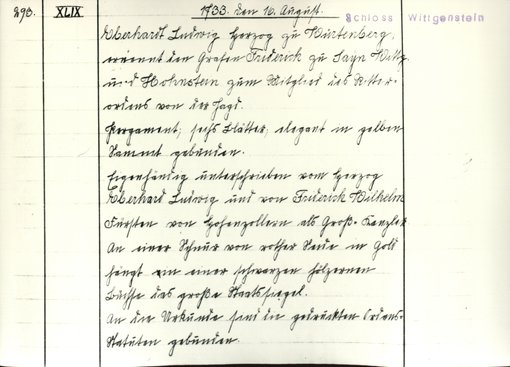 293. XLIX 1733. den 16. August. Schloss Wittgenstein
Eberhardt Ludwig Herzog zu Würtenberg,
ernennt den Grafen Friderick zu Sayn Wittg.
und Hohnstein zum Mitglied des Ritter-
ordens von der Jagd.
Pergament, sechs Blätter, elegant in gelben
Sammt gebunden.
Eigenhändig unterschrieben vom Herzog
Eberhard Ludwig und von Friderick Wilhelm
Fürsten von Hohenzollern als Groß-Kanzler
An einer Schnur von rother Seide in Gold
hängt in einer schwarzen hölzernen
Büchse das große Staatssiegel.
An die Urkunde sind die gedruckten Ordens-
Statuten gebunden.